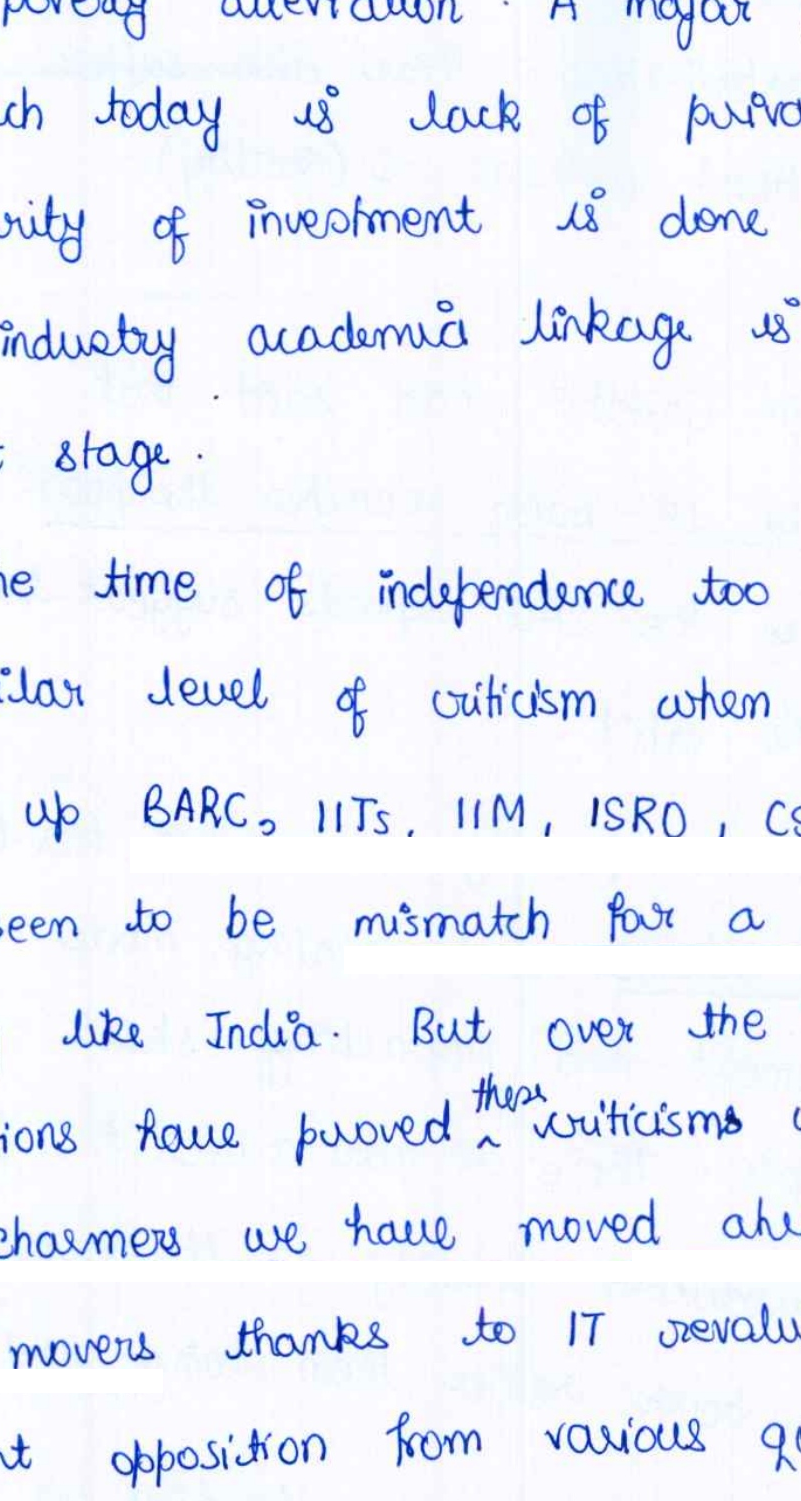 poverty alleviation. A major
ch today is lack of priva
rity of investment is done
industry academia linkage is
t stage.
he time of independence too
ilar level of criticism when
up BARC, IITs, IIM, ISRO, CS
seen to be mismatch for a
like India. But over the
ions have proved these criticisms
charmers we have moved ahe
movers thanks to IT revalu
nt opposition from various qu